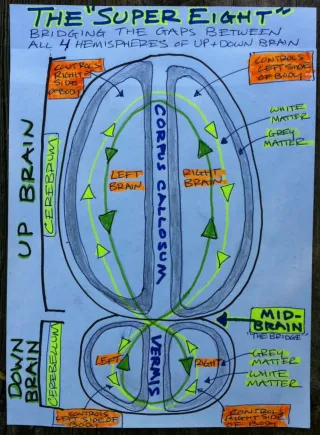 THE "SUPER EIGHT"
BRIDGING THE GAPS BETWEEN
ALL 4 HEMISPHERES OF UP+DOWN BRAIN
CONTROLS
RIGHT
SIDE
OF BODY
CONTROLS
LEFT SIDE
OF BODY
WHITE
MATTER
GREY
MATTER
UP BRAIN
CEREBRUM
LEFT
BRAIN
CORPUS CALLOSUM
RIGHT
BRAIN
MID-
BRAIN
"THE BRIDGE"
DOWN
BRAIN
CEREBELLUM
LEFT
VERMIS
RIGHT
GREY
MATTER
WHITE
MATTER
CONTROLS
LEFT SIDE OF
BODY
CONTROLS
RIGHT SIDE
OF BODY